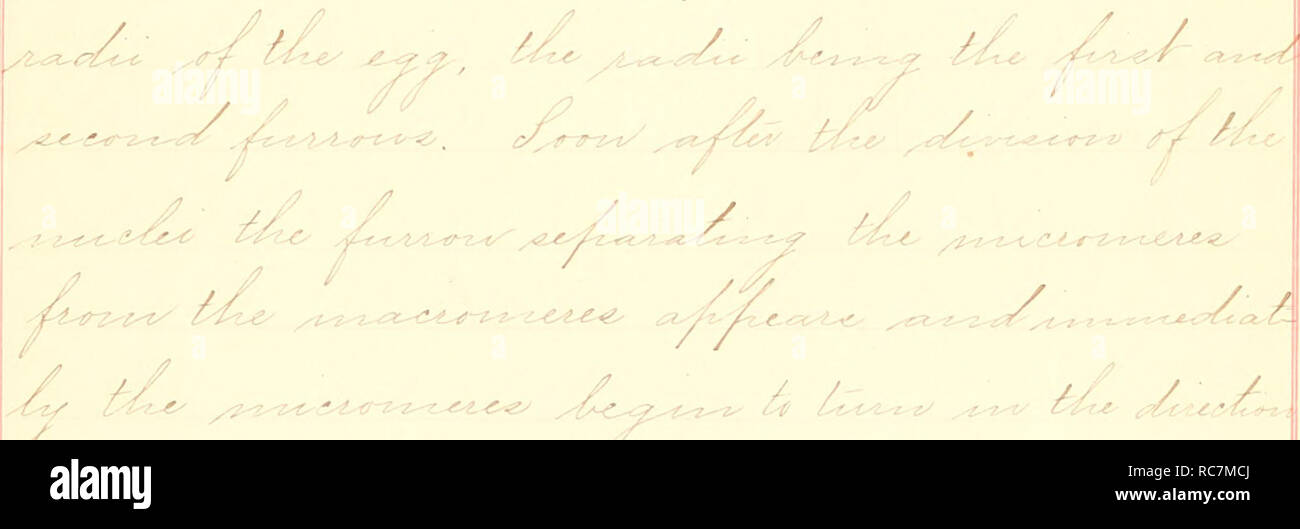 radii of the egg, the radii being the first and
second furrows. Soon after the division of the
nuclei the furrow separating the micromeres
from the macromeres appears and immediat-
ly the micromeres begin to turn in the direction
alamy
Image ID: RC7MCJ
www.alamy.com